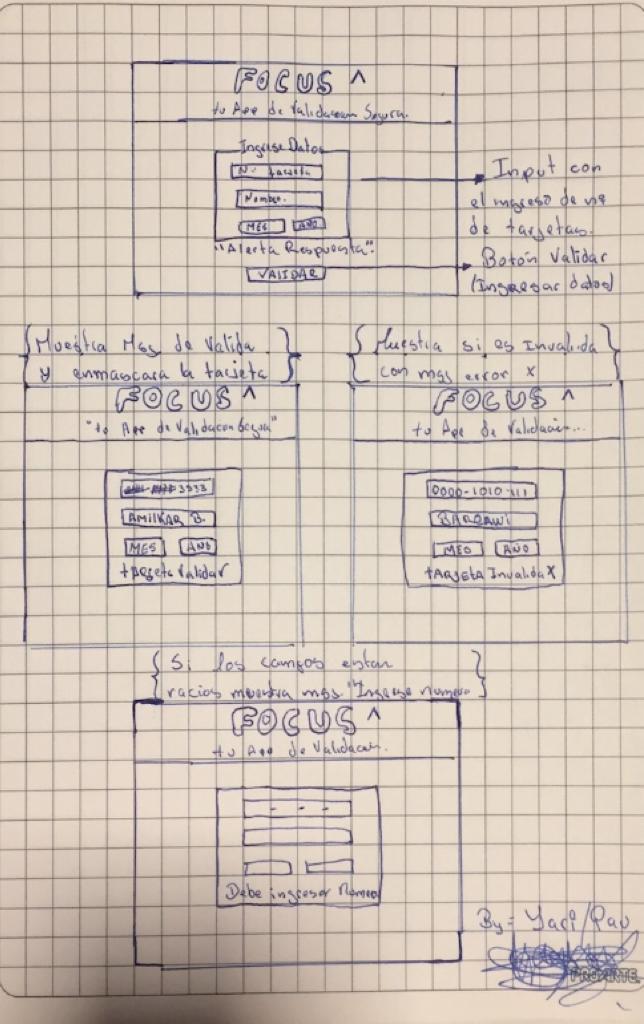 FOCUS ^
tu App de Validacion Segura.
Ingrese Datos
N° tarjeta
Nombre.
MES AÑO
"Alerta Respuesta".
VALIDAR
Input con
el ingreso de n°
de tarjetas.
Botón Validar
(Ingresar datos)
{Muestra Msg de Valida
y enmascara la tarjeta}
FOCUS ^
"tu App de Validacion Segura"
3333
AMILKAR B.
MES AÑO
tarjeta Validar
{Muestra si es Invalida
con msg error x}
FOCUS ^
tu App de Validacion...
0000-1010-111
MES AÑO
tARJETA Invalida X
{Si los campos estan
vacios muestra msg. "Ingrese numero}
FOCUS ^
tu App de Validacion.
- - -
Debe ingresar Numero
By = Yari/Pau
PROARTE